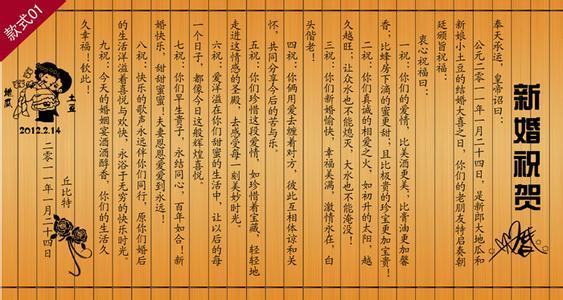 款式01
新婚祝贺
奉天承运，皇帝诏曰：
公元二零一一年一月二十四日，是新郎大地瓜和
新娘小土豆的结婚大喜之日，你们的老朋友特启奏朝
廷颁旨祝福：
衷心祝福曰：
一祝：你们的爱情，比美酒更美，比膏油更加馨
香，比蜂房下滴的蜜更甜；且比极贵的珍宝更加宝贵！
二祝：你们真诚的相爱之火，如初升的太阳，越
久越旺；让众水也不能熄灭，大水也不能淹没！
三祝：你们新婚愉快，幸福美满，激情永在，白
头偕老！
四祝：你俩用爱去缠着对方，彼此互相体谅和关
怀，共同分享今后的苦与乐。
五祝：你们珍惜这段爱情，如珍惜着宝藏，轻轻地
走进这情感的圣殿，去感受每一刻美妙时光。
六祝：爱洋溢在你们甜蜜的生活中，让以后的每
一个日子，都像今日这般辉煌喜悦。
七祝：你们早生贵子，永结同心，百年好合！新
婚快乐，甜甜蜜蜜！夫妻恩恩爱爱到永远！
八祝：快乐的歌声永远伴你们同行，愿你们婚后
的生活洋溢着喜悦与欢快，永浴于无穷的快乐时光。
九祝：今天的婚姻宴酒酒醇香，你们的生活久
久幸福！钦此！
丘比特
二零一一年一月二十四日
地瓜
土豆
2012.2.14